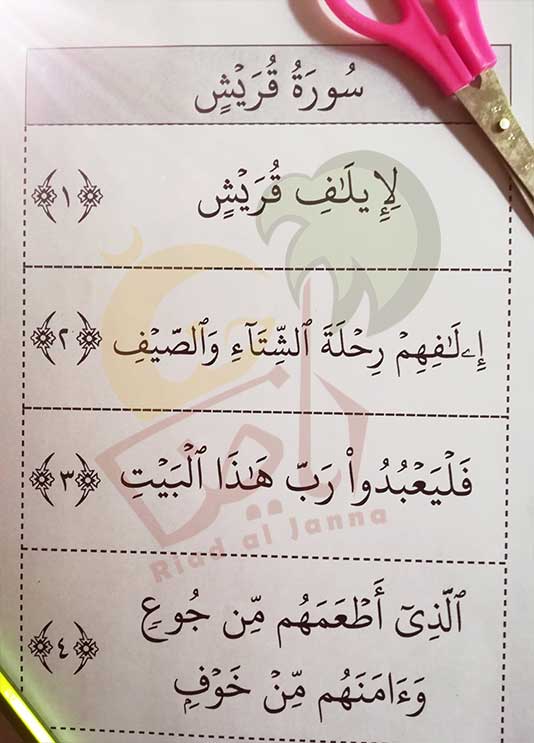 سُورَةُ قُرَيْشٍ
لِإِيلَٰفِ قُرَيْشٍ ﴿١﴾
إِۦلَٰفِهِمْ رِحْلَةَ ٱلشِّتَآءِ وَٱلصَّيْفِ ﴿٢﴾
فَلْيَعْبُدُوا۟ رَبَّ هَٰذَا ٱلْبَيْتِ ﴿٣﴾
ٱلَّذِىٓ أَطْعَمَهُم مِّن جُوعٍ
وَءَامَنَهُم مِّنْ خَوْفٍ ﴿٤﴾
رياض
Riad al Janna